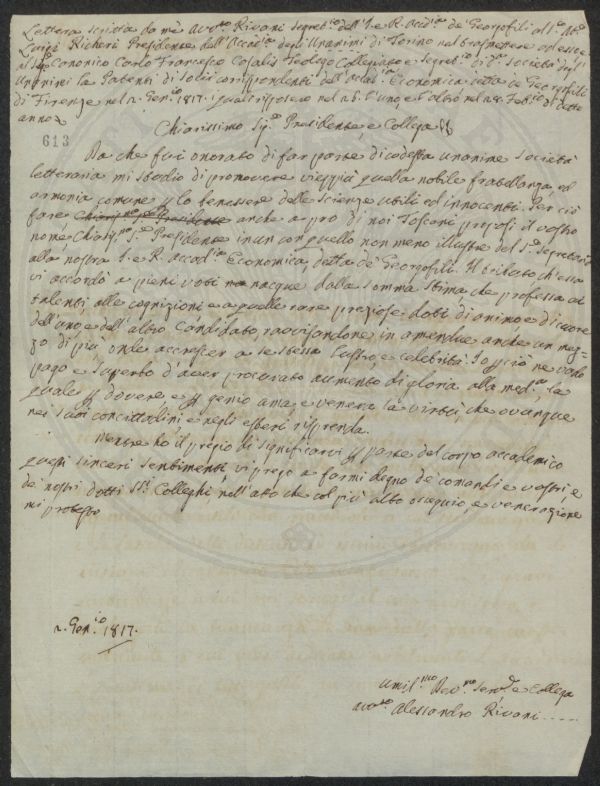 Lettera scritta da me Avv.to Rivani Segret.io dell'I. e R. Accad.ia de Georgofili al S.e Av.to
Luigi Richeri Presidente dell'Accad.ia degli Unanimi di Torino nel trasmettere ad esso
e al S.e Canonico Carlo Francesco Casalis Teologo Collegiato e Segret.io di d.a Società degli
Unanimi la Patente di Soli corrispondenti dell'Accad.ia Economica detta de Georgofili
di Firenze nel 2. Gen.io 1817. i quali risposero nel 26. l'uno, e l'altro nel 28. Feb.io di detto
anno
613
Chiarissimo Sig.e Presidente e Collega
Da che fui onorato di far parte di codesta unanime Società
letteraria mi studio di promovere vieppiù quella nobile fratellanza, ed
armonia comune p lo benessere delle Scienze utili ed innocenti. Per ciò
fare Presidente anche a pro di noi Toscani proposi il vostro
nome Chiariss.o S.e Presidente in un con quello non meno illustre del S.e Segretario
alla nostra I. e R. Accad.ia Economica, detta de' Georgofili. Il tributo ch'essa
vi accordò a pieni voti nacque dalla somma stima che professa ai
talenti, alle cognizioni e a quelle rare preziose doti di animo e di cuore
dell'uno, e dell'altro Candidato, ravvisandone in amendue anche un mez=
zo di più, onde accrescer a se stessa lustro, e celebrità. Io p ciò ne vado
pago e superbo d'aver procurato aumento di gloria alla med.a, la
quale p dovere e p genio ama, e venera la virtù, che ovunque
nei suoi concittadini e negli esteri risplenda.
Mentre ho il pregio di significarvi p parte del corpo accademico
questi sinceri sentimenti vi prego a farmi degno de' comandi e vostri e
de' nostri dotti SS.i Colleghi nell'atto che col più alto ossequio e venerazione
mi protesto
2. Gen.io 1817.
Umil.mo Dev.mo Serv.e e Collega
Avv.to Alessandro Rivani